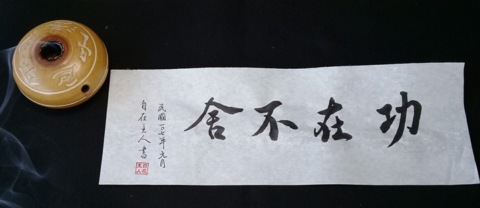 功在不舍
民國一〇七年元月
自在主人書